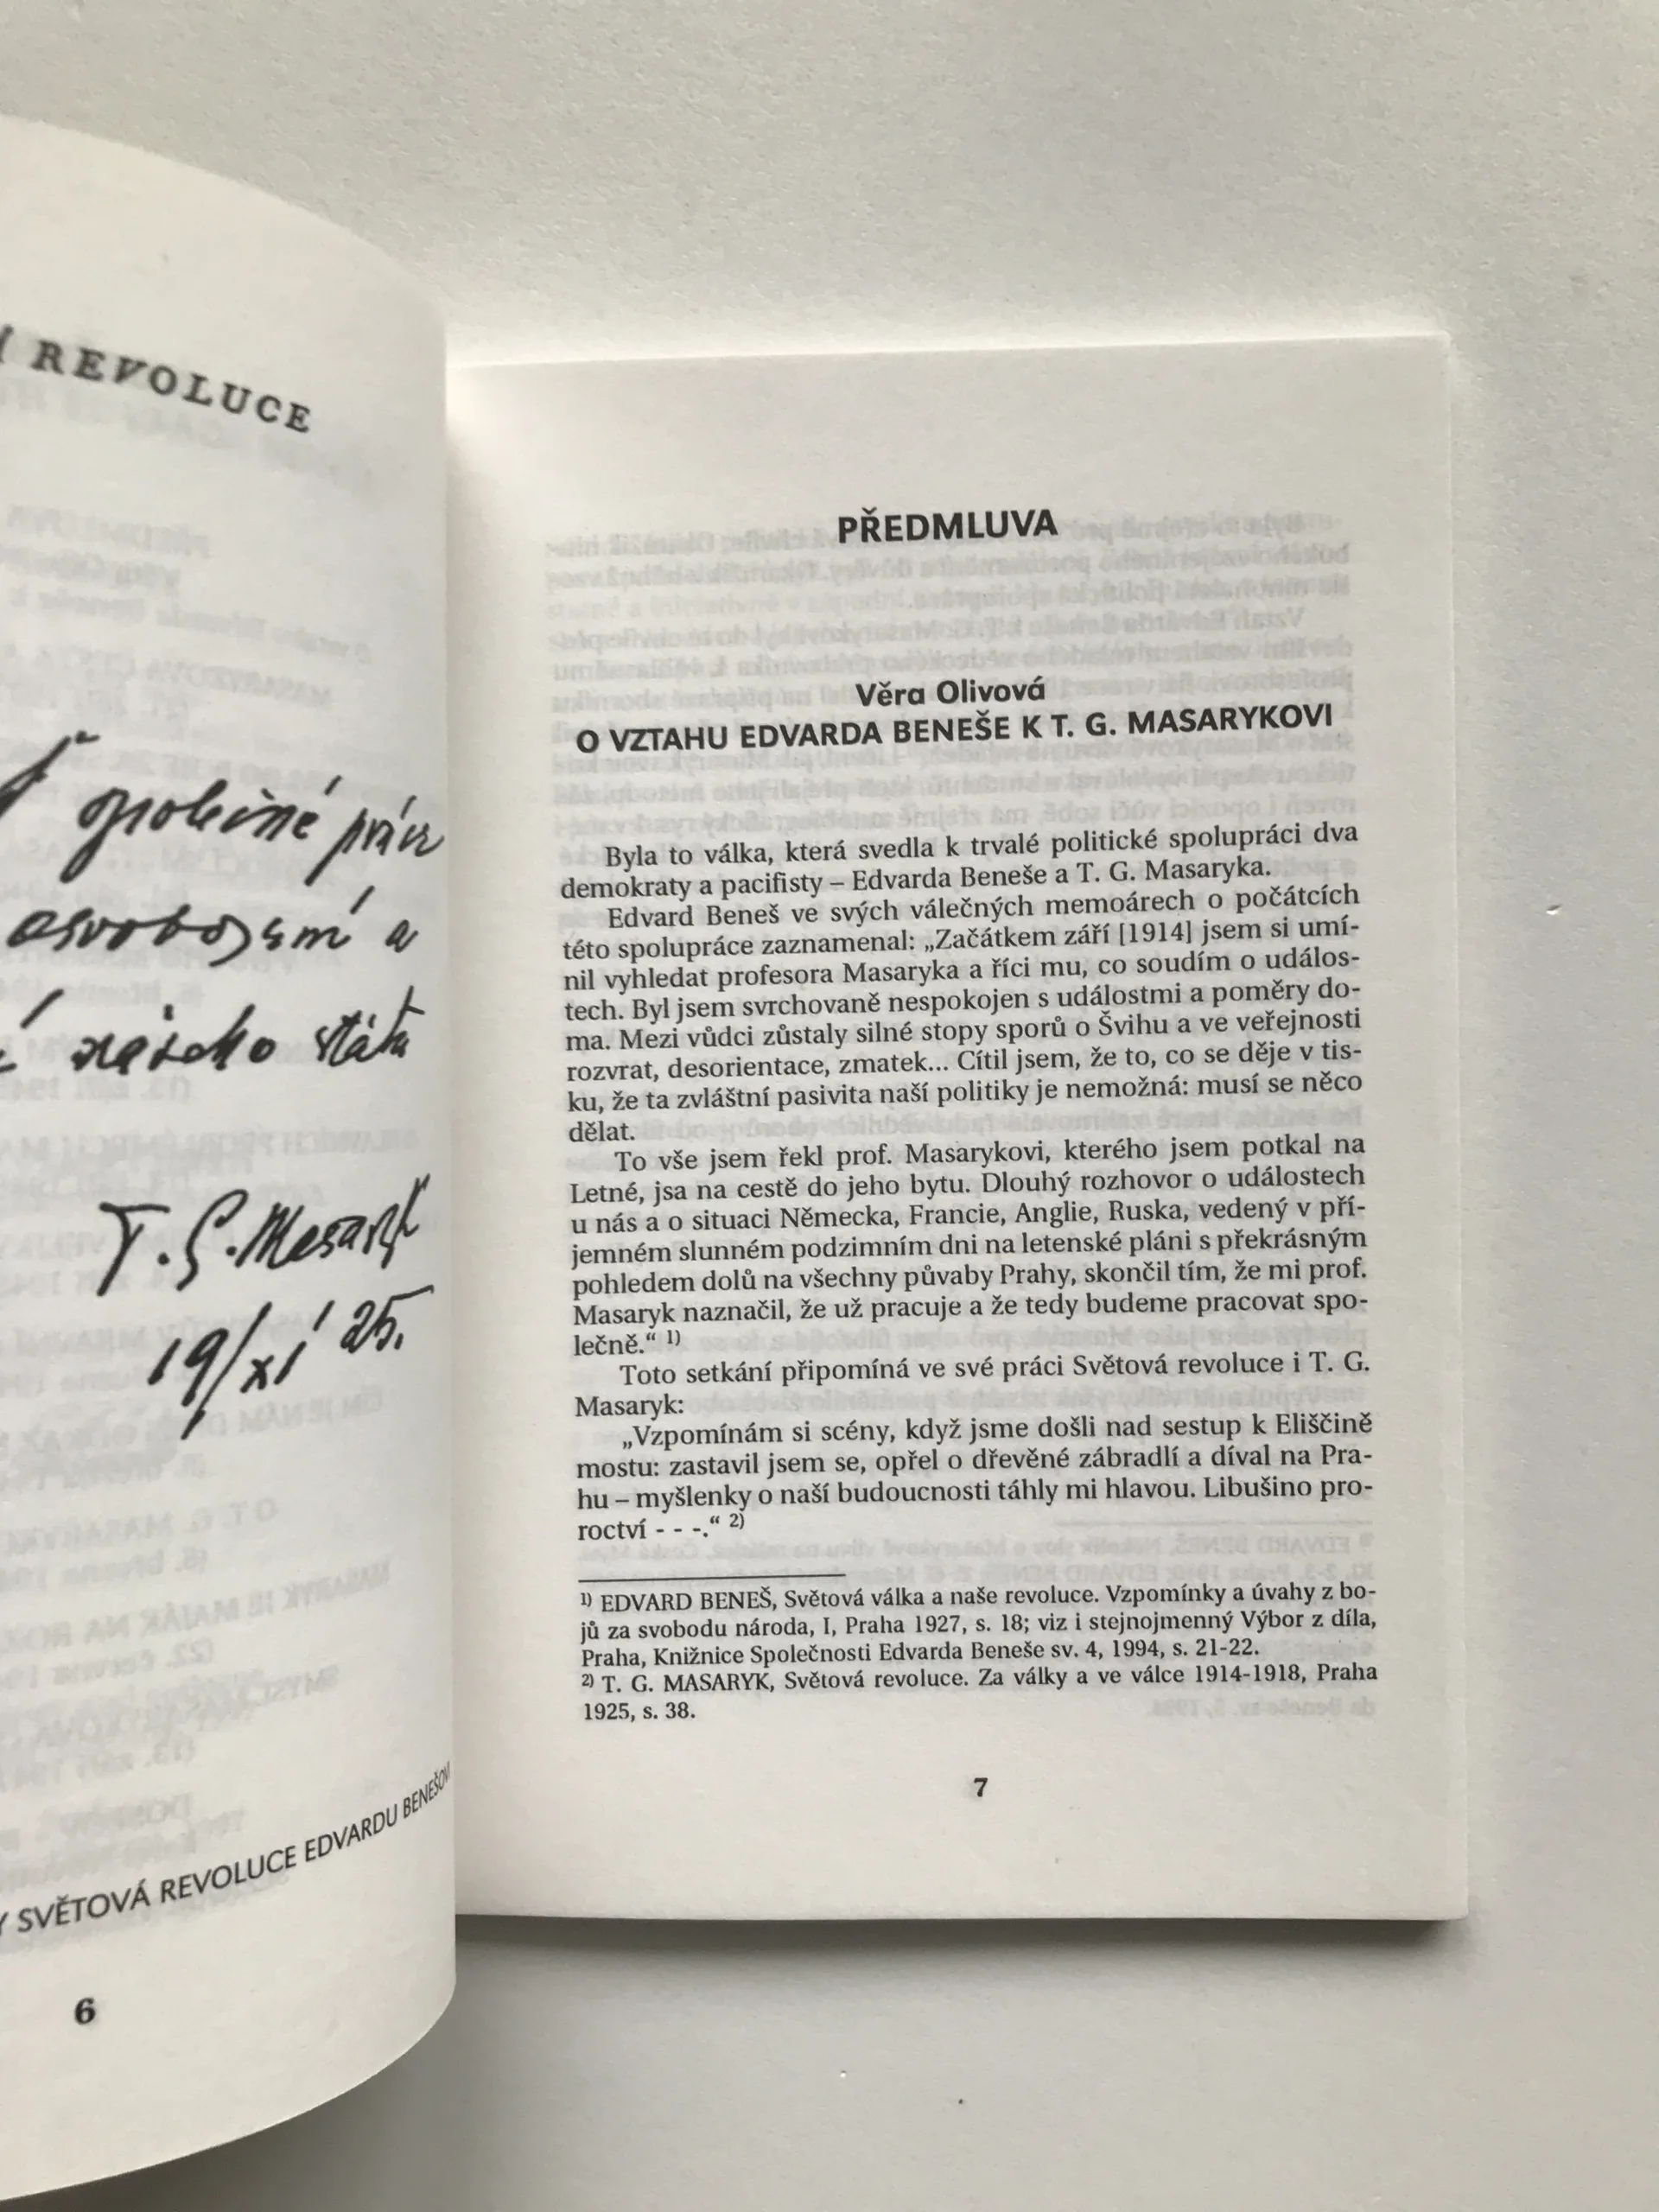 REVOLUCE
společné práci
osvobození a
našeho státu
T. G. Masaryk
19/XI 25.
SVĚTOVÁ REVOLUCE EDVARDU BENEŠOVI
6
PŘEDMLUVA
Věra Olivová
O VZTAHU EDVARDA BENEŠE K T. G. MASARYKOVI
Byla to válka, která svedla k trvalé politické spolupráci dva
demokraty a pacifisty – Edvarda Beneše a T. G. Masaryka.
Edvard Beneš ve svých válečných memoárech o počátcích
této spolupráce zaznamenal: „Začátkem září [1914] jsem si umí-
nil vyhledat profesora Masaryka a říci mu, co soudím o událos-
tech. Byl jsem svrchovaně nespokojen s událostmi a poměry do-
ma. Mezi vůdci zůstaly silné stopy sporů o Švihu a ve veřejnosti
rozvrat, desorientace, zmatek... Cítil jsem, že to, co se děje v tis-
ku, že ta zvláštní pasivita naší politiky je nemožná: musí se něco
dělat.
To vše jsem řekl prof. Masarykovi, kterého jsem potkal na
Letné, jsa na cestě do jeho bytu. Dlouhý rozhovor o událostech
u nás a o situaci Německa, Francie, Anglie, Ruska, vedený v pří-
jemném slunném podzimním dni na letenské pláni s překrásným
pohledem dolů na všechny půvaby Prahy, skončil tím, že mi prof.
Masaryk naznačil, že už pracuje a že tedy budeme pracovat spo-
lečně.“ 1)
Toto setkání připomíná ve své práci Světová revoluce i T. G.
Masaryk:
„Vzpomínám si scény, když jsme došli nad sestup k Eliščině
mostu: zastavil jsem se, opřel o dřevěné zábradlí a díval na Pra-
hu – myšlenky o naší budoucnosti táhly mi hlavou. Libušino pro-
roctví - - -.“ 2)
1) EDVARD BENEŠ, Světová válka a naše revoluce. Vzpomínky a úvahy z bo-
jů za svobodu národa, I, Praha 1927, s. 18; viz i stejnojmenný Výbor z díla,
Praha, Knižnice Společnosti Edvarda Beneše sv. 4, 1994, s. 21-22.
2) T. G. MASARYK, Světová revoluce. Za války a ve válce 1914-1918, Praha
1925, s. 38.
7